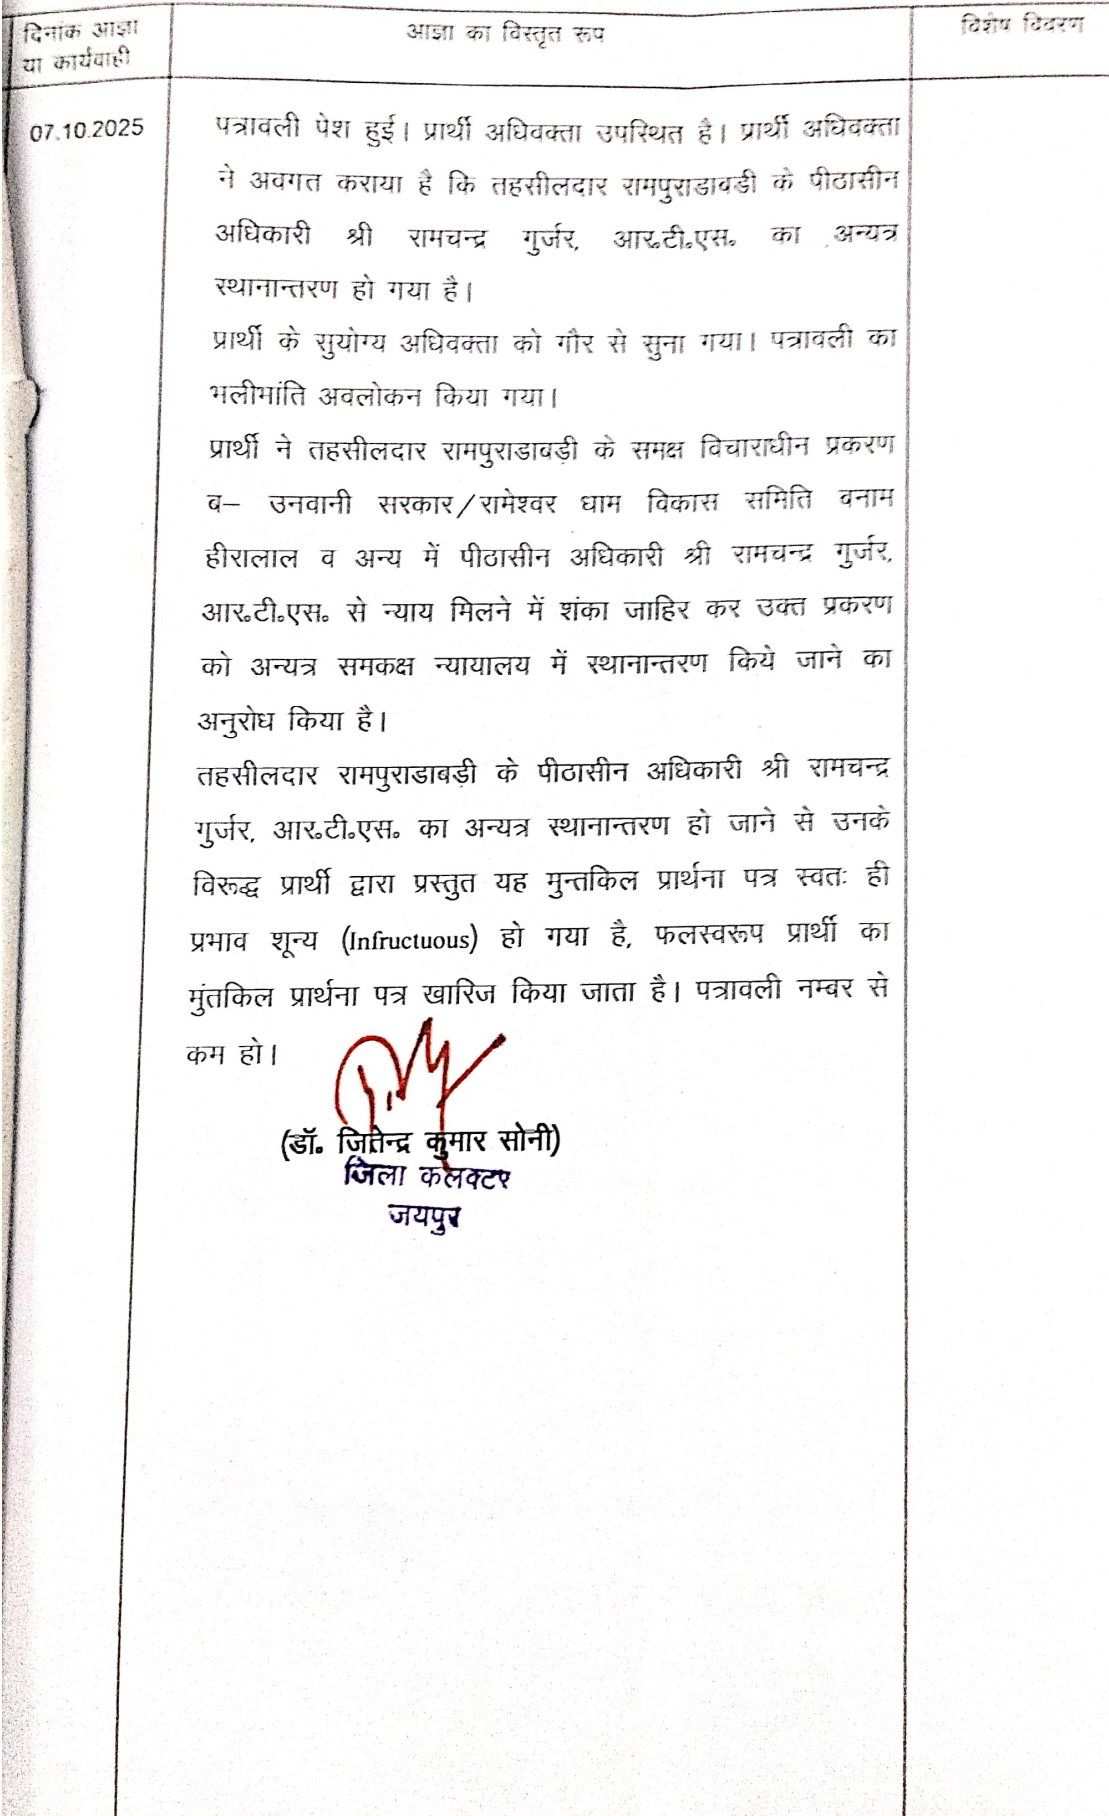 दिनांक आज्ञा
या कार्यवाही
आज्ञा का विस्तृत रूप
विशेष विवरण
07.10.2025
पत्रावली पेश हुई। प्रार्थी अधिवक्ता उपस्थित है। प्रार्थी अधिवक्ता
ने अवगत कराया है कि तहसीलदार रामपुराडाबडी के पीठासीन
अधिकारी श्री रामचन्द्र गुर्जर, आर.टी.एस. का अन्यत्र
स्थानान्तरण हो गया है।
प्रार्थी के सुयोग्य अधिवक्ता को गौर से सुना गया। पत्रावली का
भलीभांति अवलोकन किया गया।
प्रार्थी ने तहसीलदार रामपुराडाबड़ी के समक्ष विचाराधीन प्रकरण
ब– उनवानी सरकार/रामेश्वर धाम विकास समिति बनाम
हीरालाल व अन्य में पीठासीन अधिकारी श्री रामचन्द्र गुर्जर,
आर.टी.एस. से न्याय मिलने में शंका जाहिर कर उक्त प्रकरण
को अन्यत्र समकक्ष न्यायालय में स्थानान्तरण किये जाने का
अनुरोध किया है।
तहसीलदार रामपुराडाबड़ी के पीठासीन अधिकारी श्री रामचन्द्र
गुर्जर, आर.टी.एस. का अन्यत्र स्थानान्तरण हो जाने से उनके
विरूद्ध प्रार्थी द्वारा प्रस्तुत यह मुन्तकिल प्रार्थना पत्र स्वतः ही
प्रभाव शून्य (Infructuous) हो गया है, फलस्वरूप प्रार्थी का
मुंतकिल प्रार्थना पत्र खारिज किया जाता है। पत्रावली नम्बर से
कम हो।
(डॉ. जितेन्द्र कुमार सोनी)
जिला कलेक्टर
जयपुर